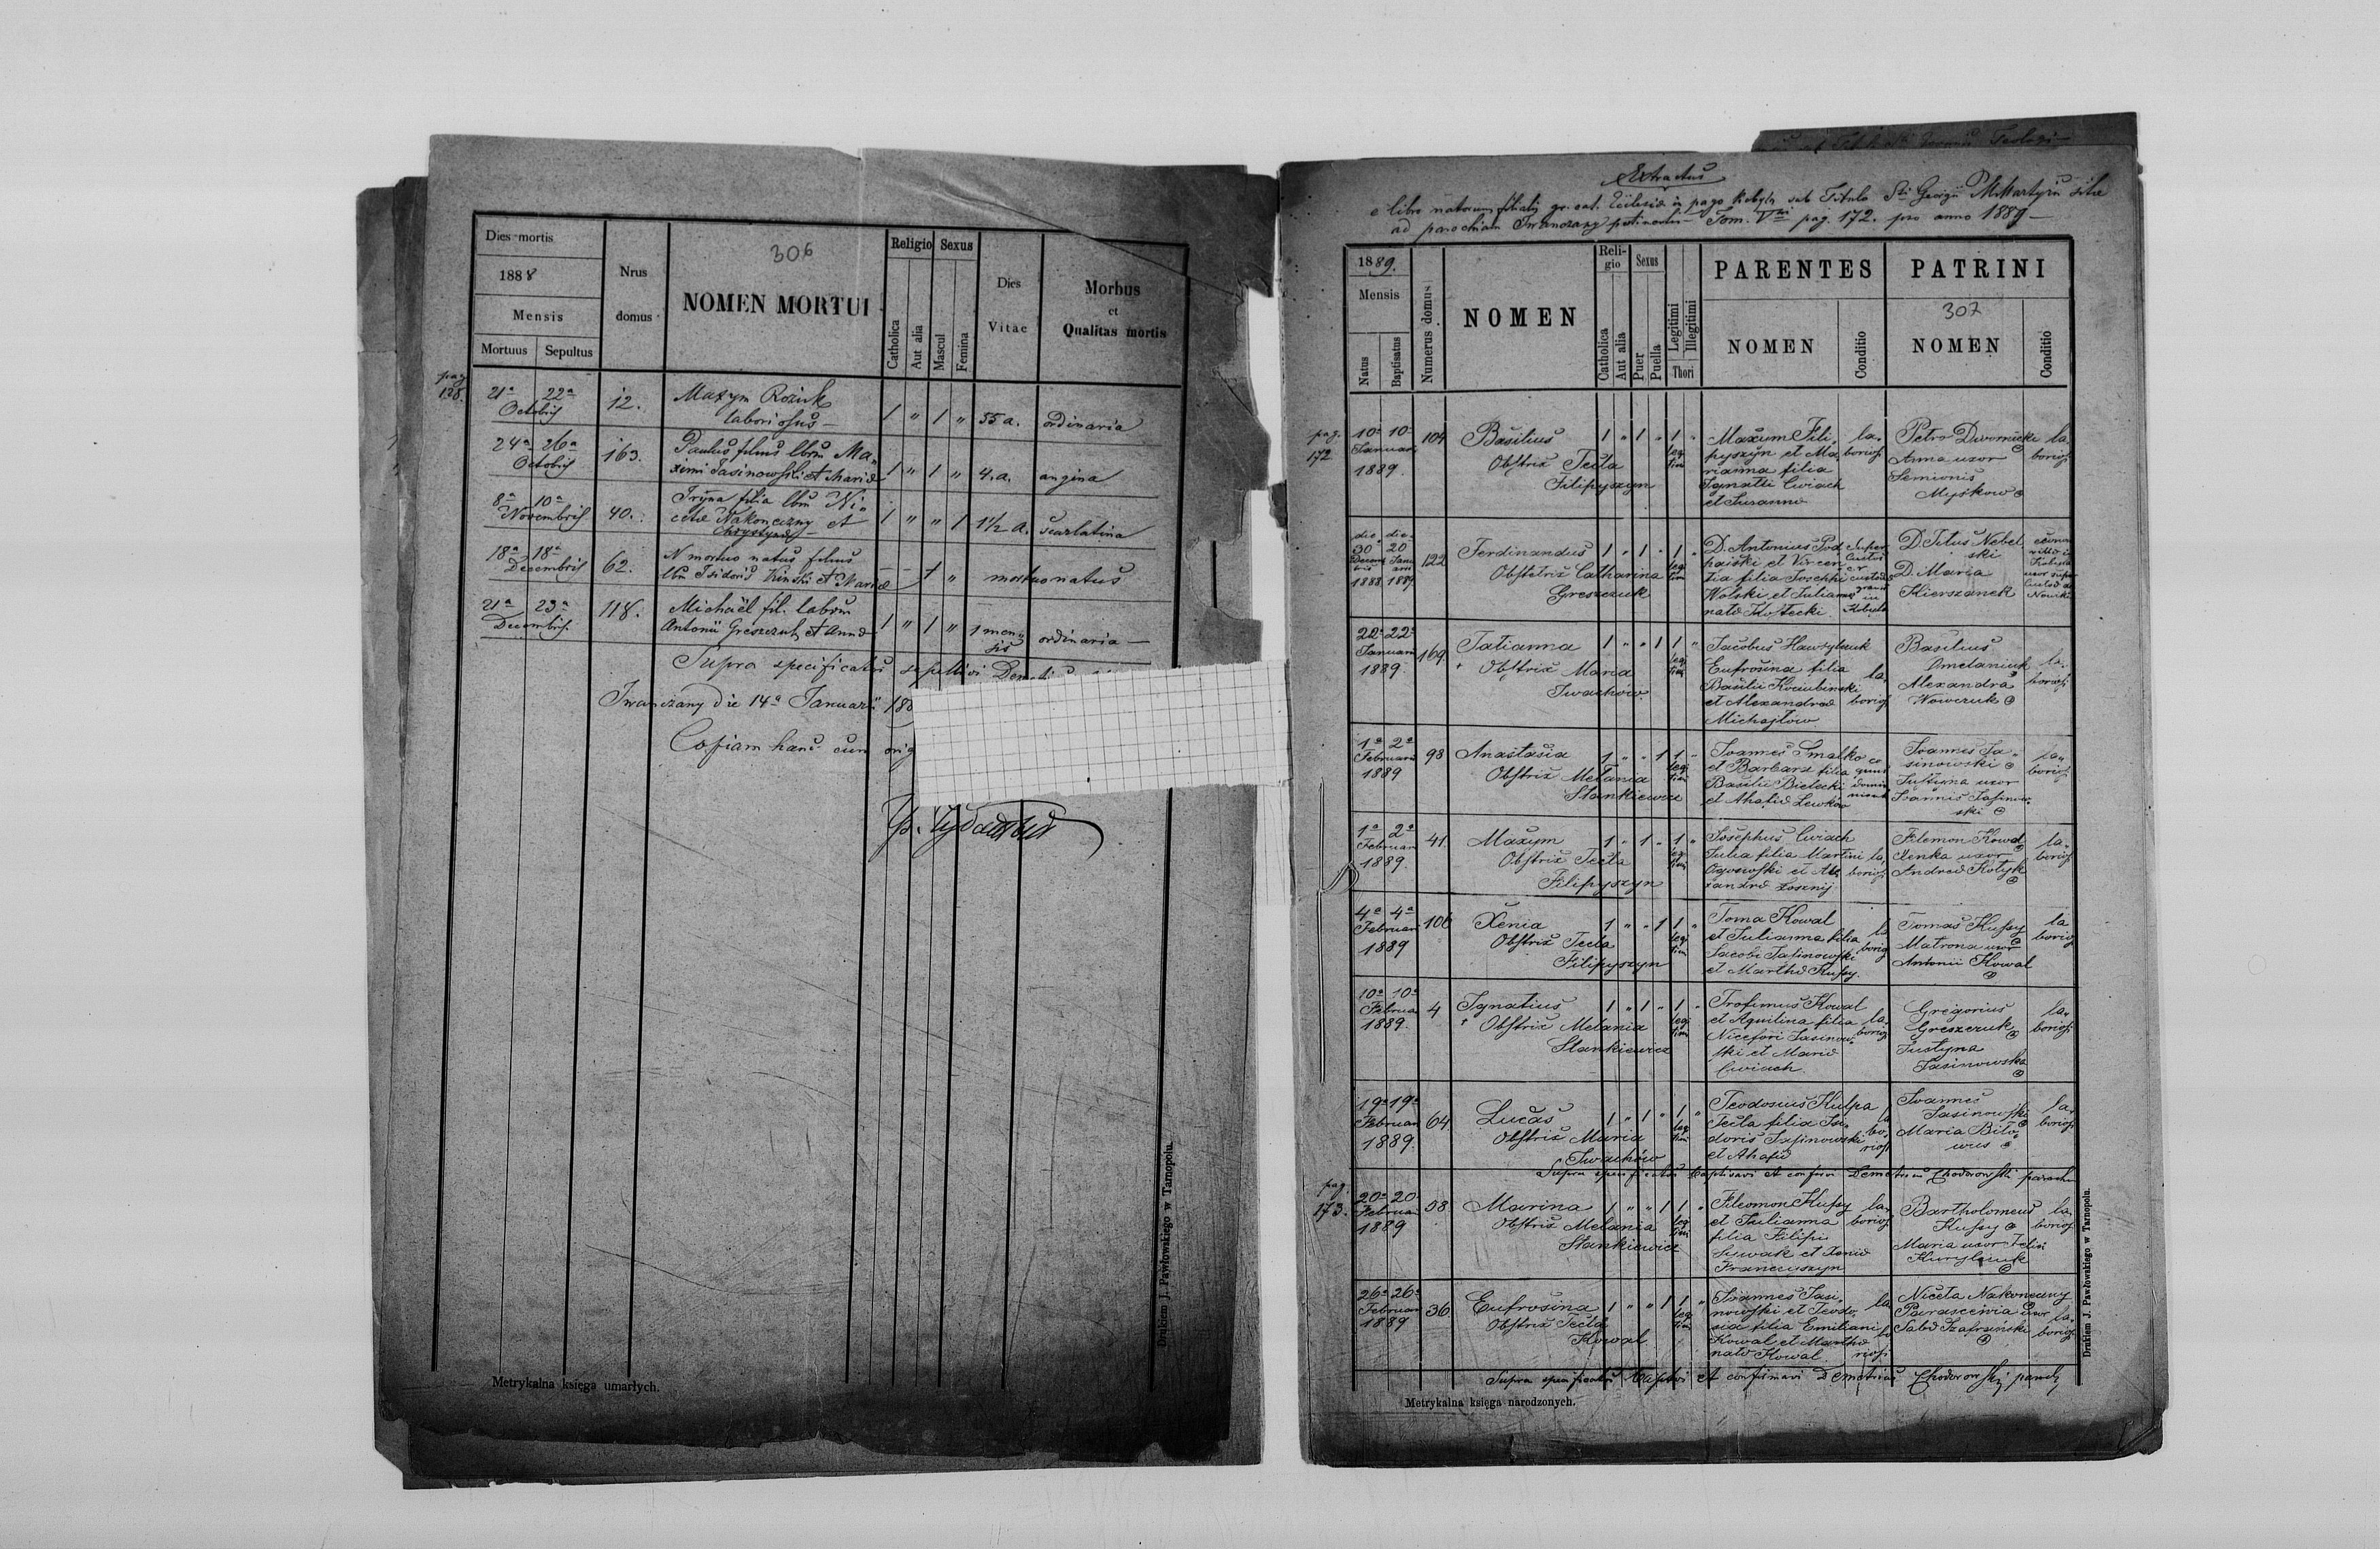 Dies mortis
1888
Mensis
Mortuus Sepultus
Nrus domus
306
NOMEN MORTUI
Religio Sexus
Catholica
Aut alia
Mascul
Femina
Dies Vitae
Morbus
et
Qualitas mortis
pag
128.
21a 22a
Octobris
12.
Maxym Roziuk
laboriosus
1 " 1 " 55 a. ordinaria
24a 26a
Octobris
163.
Paulus filius lbrm Ma„
ximi Jasinowski et Maria
1 " 1 " 4. a. angina
8a 10a
Novembris
40.
Iryna filia lbm Ni„
cetae Nakonczny et
Chrystyna
1 " " 1 1 1/2 a. scarlatina
18a 18a
Decembris
62.
N mortuo natus filius
lbm Isidori Kinski et Mariae
mortuo natus
21a 23a
Decembris.
118.
Michaël fil. labrm
Antonii Greszczuk et Anna
1 " 1 " 1 men„
sis
ordinaria
Supra specificatos sepelivi
Iwanczany die 14a Januarii 188
Copiam hanc cum orig
Metrykalna księga umarłych.
Drukiem J. Pawłowskiego w Tarnopolu.
Extractus
e libro natorum filialis gr. cat. Ecclesiae in pago Kobyla sub Titulo Sti Georgii M Martyris sitae
ad parochiam Iwanczany pertinentis Tom. V pag. 172. pro anno 1889
1889.
Mensis
Natus
Baptisatus
Numerus domus
NOMEN
Reli-
gio
Catholica
Aut alia
Sexus
Puer
Puella
Legitimi
Illegitimi
Thori
PARENTES
NOMEN
Conditio
PATRINI
307
NOMEN
Conditio
pag.
172
10a 10a
Januar
1889.
104
Basilius
Obstrix Tecla
Filipyszyn
1 " 1 " 1 "
leg
tim
Maxum Fili„
pyszyn et Ma„
rianna filia
Ignatii Cwiach
et Susanna
la„
boriosi
Petro Dwornicki
Anna uxor
Semionis
Myskow
la
boriosi
die die
30 20
1888 1889
122
Ferdinandus
Obstetrix Catharina
Greszczuk
1 " 1 " 1 "
leg
tim
D. Antonius Pod„
hajski et Vincen
tia filia Josephi
Wolski et Juliana
nata Kotecki
D. Titus Nebel
ski
D. Maria
Kierszanek
22a 22a
Januar
1889.
169.
Tatianna
Obstrix Maria
Iwachow
1 " " 1 1 "
leg
tim
Jacobus Hawrylczuk
Eufrosina filia
Basilii Kociubinski
et Alexandra
Michajlow
la„
boriosi
Basilius
Ometaniuk
Alexandra
Wowczuk
la„
boriosi
1a 2a
Februar
1889
98
Anastasia
Obstrix Melania
Stankiewicz
1 " " 1 1 "
leg
tim
Joannes Smalko
et Barbara filia
Basilii Bielecki
et Ahafia Lewkow
Joannes Ja„
sinowski
Justyna uxor
Joannis Jasinow„
ski
la„
boriosi
1a 2a
Februar
1889.
41.
Maxym
Obstrix Tecla
Filipyszyn
1 " 1 " 1 "
Josephus Cwiach
Julia filia Martini
Ogonowski et Ale
xandra
la„
boriosi
Filemon Kowal
Xenka uxor
Andrea Kotyk
la„
boriosi
4a 4a
Februar
1889
106
Xenia
Obstrix Tecla
Filipyszyn
1 " " 1 1 "
leg
tim
Toma Kowal
et Julianna filia
Jacobi Jasinowski
et Martha Kufsy.
la
boriosi
Tomas Kufsy
Matrona uxor
Antonii Kowal
la
boriosi
10a 10a
Februar
1889.
4
Ignatius
Obstrix Melania
Stankiewicz
1 " 1 " 1 "
leg
tim
Trofimus Kowal
et Aquilina filia
Nicefori Jasinow„
ski et Maria
Cwiach
la„
boriosi
Gregorius
Greszczuk
Justyna
Jasinowska
la„
boriosi
19a 19a
Februar
1889.
64
Lucas
Obstrix Maria
Iwachów
1 " 1 " 1 "
leg
tim
Teodosius Kulpa
Tecla filia Isi„
doris Jasinowski
et Ahafia
la
bo„
riosi
Joannes
Jasinowski
Maria Bilo„
wus
la„
boriosi
Supra specificatos baptisavi et confirmavi Demetrius Chodorowski parochus
pag.
173.
20a 20
Februar
1889
58
Marina
Obstrix Melania
Stankiewicz
1 " " 1 1 "
leg
tim
Fileomon Kufsy
et Julianna
filia Filipi
Sywak et Xenia
Franczyszyn
la„
boriosi
Bartholomeus
Kufsy
Maria uxor
Kurylczuk
la„
boriosi
26a 26a
Februar
1889
36.
Eufrosina
Obstrix Tecla
Kowal
1 " " 1 1 "
leg
tim
Joannes Jasi„
nowski et Teodo„
sia filia Emiliani
Kowal et Martha
nata Kowal
la
bo
riosi
Niceta Nakoneczny
Parascewia uxor
Saba Szafranski
la„
boriosi
Supra specificatos baptisavi et confirmavi Demetrius Chodorowski paroch
Metrykalna księga narodzonych.
Drukiem J. Pawłowskiego w Tarnopolu.